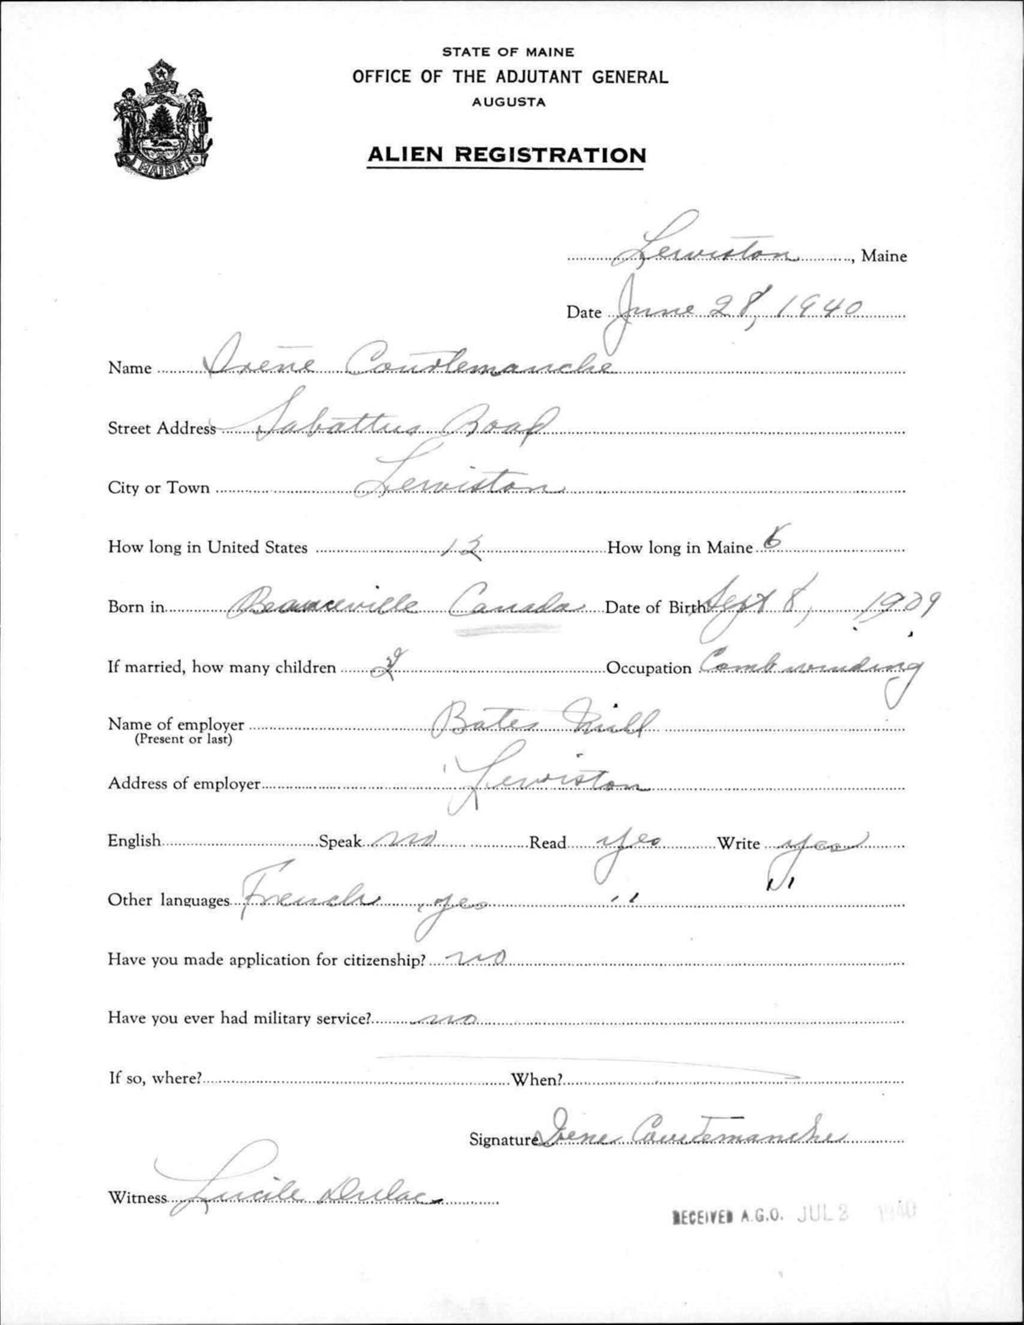 STATE OF MAINE
OFFICE OF THE ADJUTANT GENERAL
AUGUSTA
ALIEN REGISTRATION
MAINE
Lewiston, Maine
Date June 28, 1940
Name Irène Courtemanche
Street Address Sabattus Road
City or Town Lewiston
How long in United States 12 How long in Maine 6
Born in Beauceville Canada Date of Birth Sept 8, 1909
If married, how many children 2 Occupation Comb winding
Name of employer Bates Mill
(Present or last)
Address of employer Lewiston
English Speak no Read yes Write yes
Other languages French yes " "
Have you made application for citizenship? no
Have you ever had military service? no
If so, where? When?
Signature Irene Courtemanche
Witness Lucile Dulac
RECEIVED A.G.O. JUL 2 1940